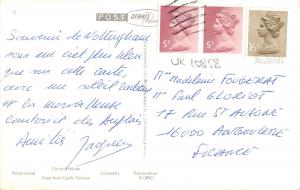 POST DENNIS
Souvenir de Nottingham
sous un ciel plus bleu
que sur cette carte,
avec un soleil radieux
et la merveilleuse
courtoisie des Anglais
Amitiés Jacques
5P
5P
16P
UK 10858
Mme Madeleine FOUGERAT
Mr Paul GLORIOT
17 Rue St AUSONE
16000 ANGOULEME
FRANCE
Robin Hood
Council House
University
View from Castle Terrace